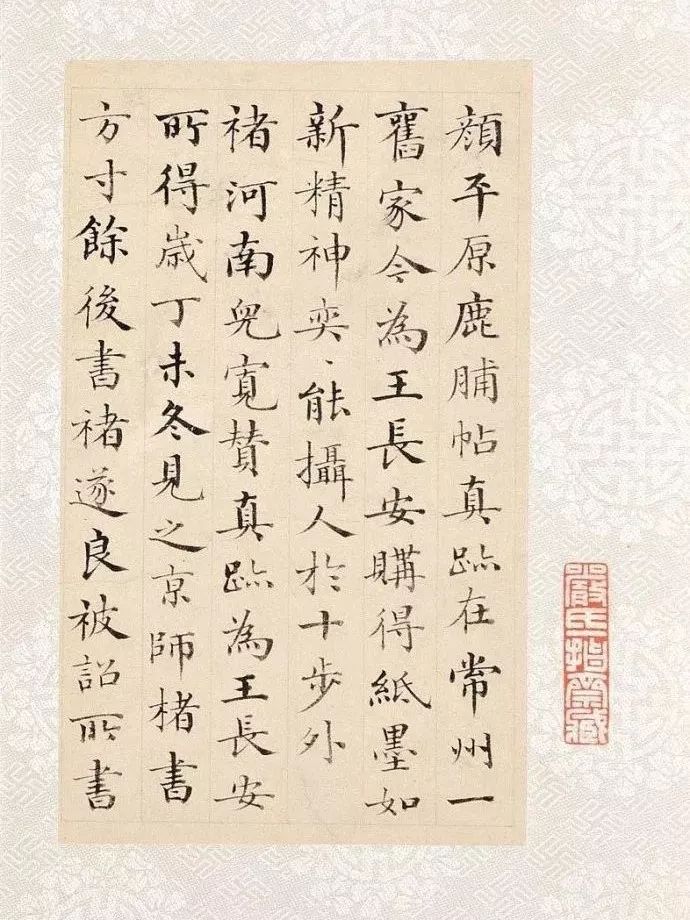 顔平原鹿脯帖真跡在常州一
舊家今為王長安購得紙墨如
新精神奕、能攝人於十步外
褚河南兒寬贊真跡為王長安
所得歲丁未冬見之京師楮書
方寸餘後書褚遂良被詔所書
嚴氏指藏